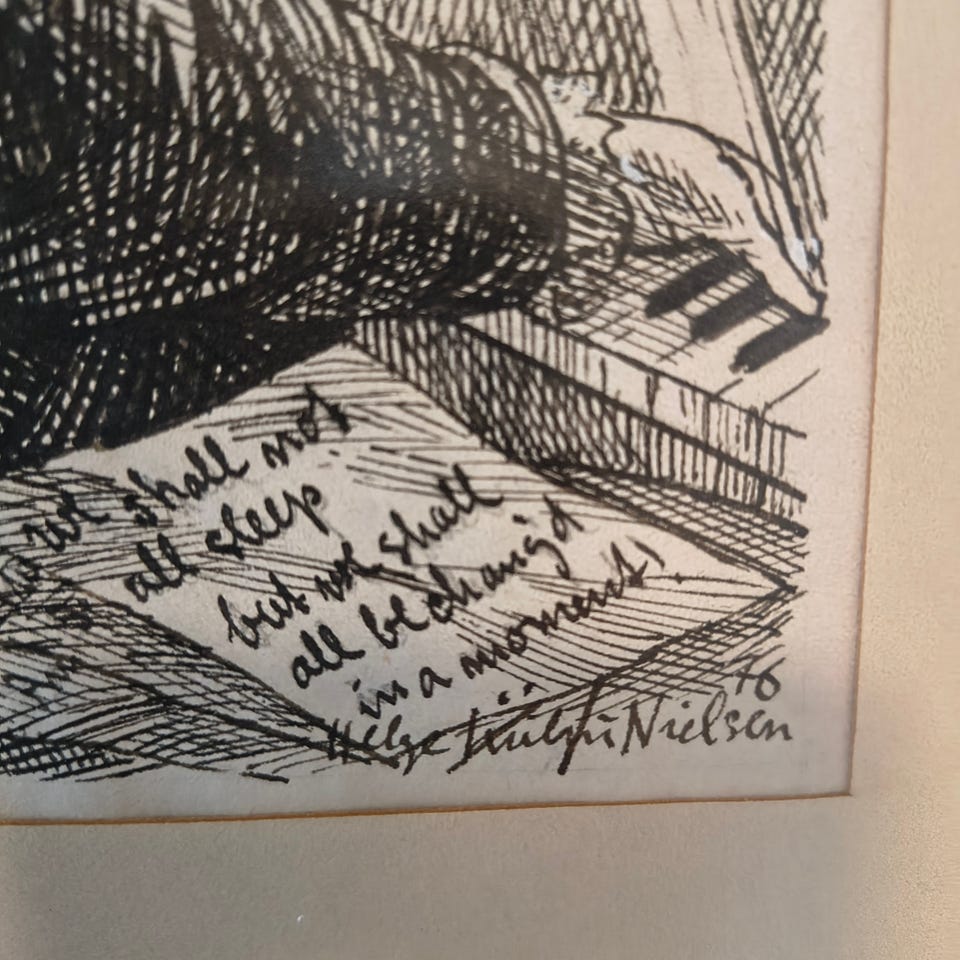 we shall not
all sleep
but we shall
all be chang'd
in a moment,
46
Helge Kühn-Nielsen